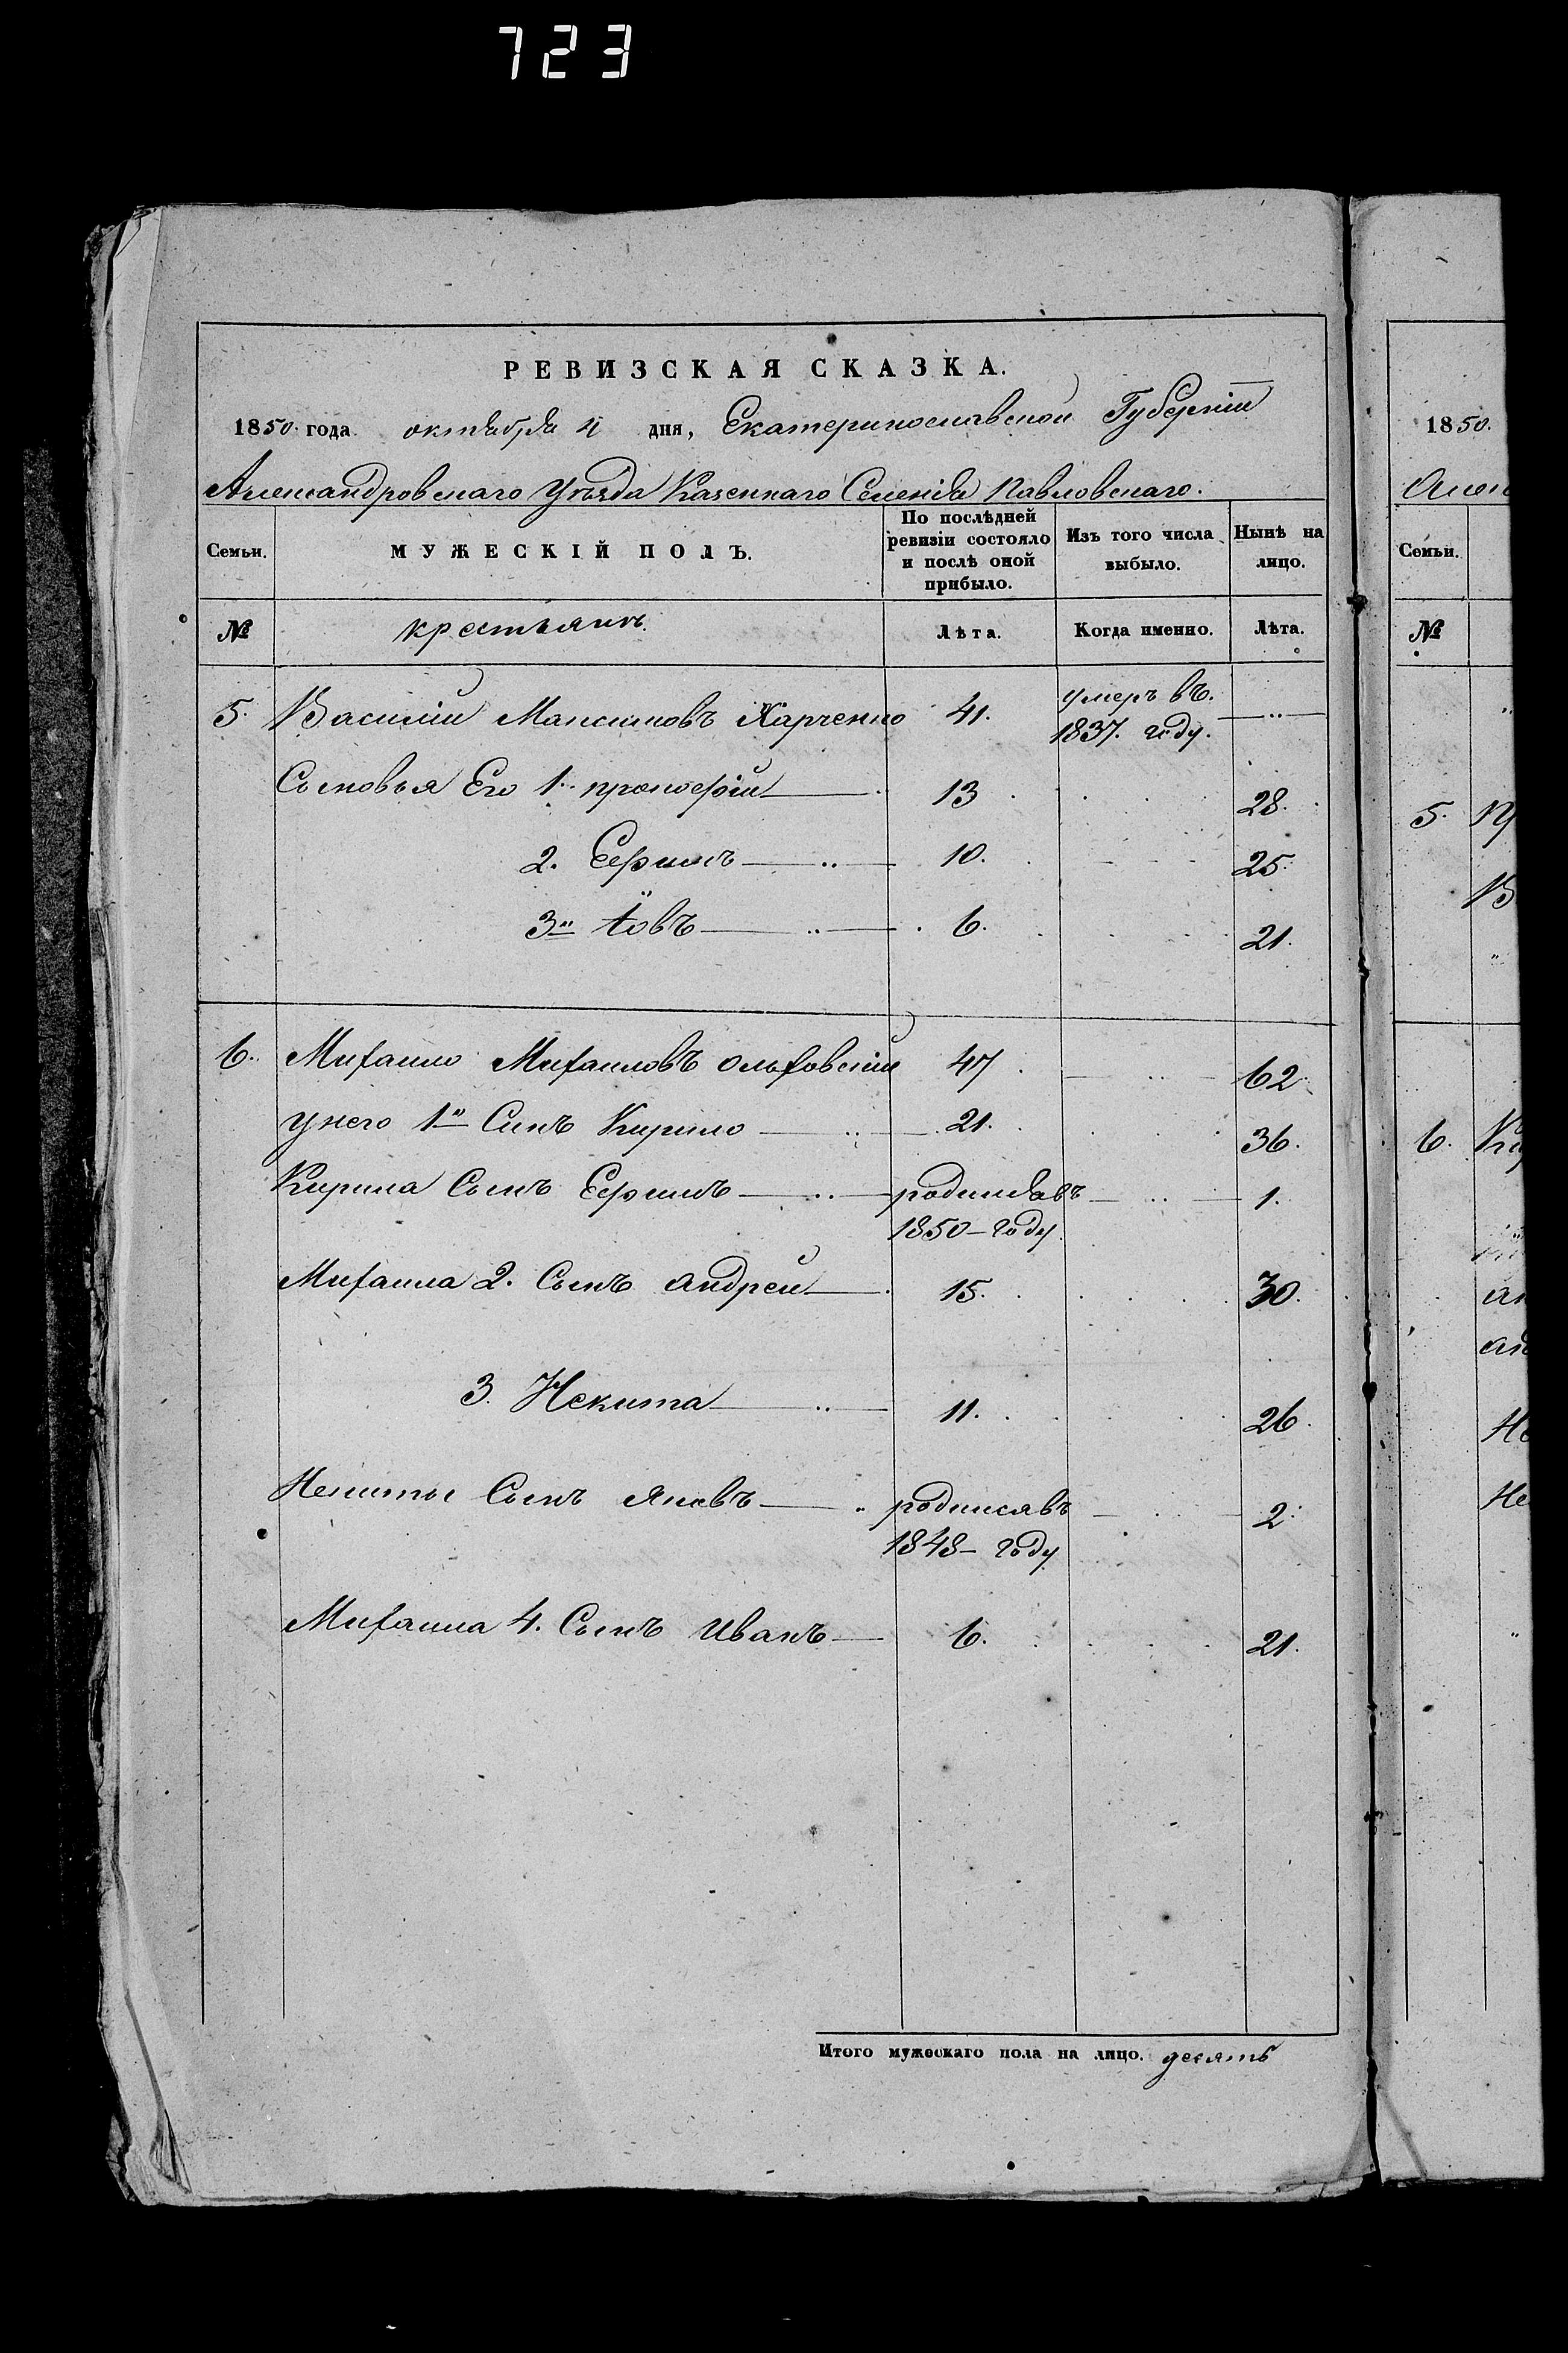 723
РЕВИЗСКАЯ СКАЗКА.
1850. года октября 4 дня, Екатеринославской Губерніи
Александровскаго Уѣзда Казеннаго Селенія Павловскаго.
Семьи. МУЖЕСКІЙ ПОЛЪ. По послѣдней ревизіи состояло и послѣ оной прибыло. Изъ того числа выбыло. Нынѣ на лицо.
№ крестьянъ. Лѣта. Когда именно. Лѣта.
5. Василій Максимовъ Харченко 41. умеръ въ. 1837. году. —„—
Сыновья Его 1. прокофій 13 28.
2. Ефимъ 10. 25.
3й Іовъ 6. 21.
6. Михаило Михаиловъ Ольховскій 47 62
унего 1й Синъ Кирило 21. 36.
Кирила Сынъ Ефимъ родилсявъ 1.
1850 - году.
Михаила 2. Сынъ андрей 15. 30.
3. Некита 11. 26.
Некиты Сынъ Яковъ родилсявъ 2.
1848 - году
Михаила 4. Сынъ Иванъ 6. 21.
Итого мужескаго пола на лицо. десять
1850.
Семьи.
№
5.
6.